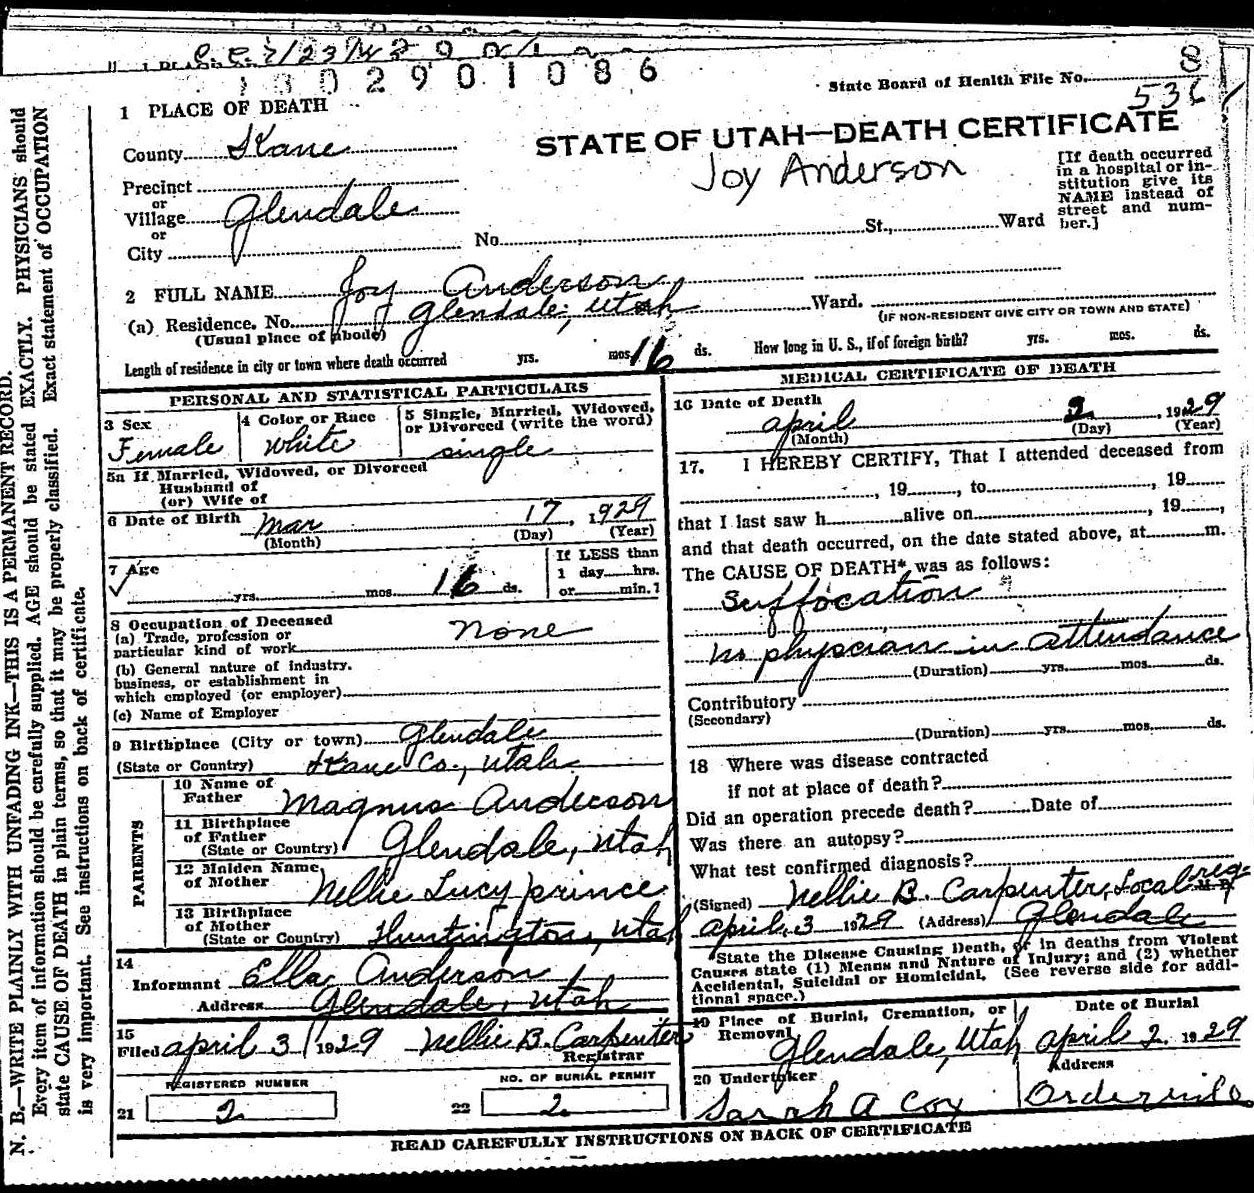 C.C. 7/23/
1 3 0 2 9 0 1 0 8 6
State Board of Health File No. 8
536
1 PLACE OF DEATH
STATE OF UTAH—DEATH CERTIFICATE
County Kane
Joy Anderson
[If death occurred in a hospital or institution give its NAME instead of street and number.]
Precinct
or
Village Glendale
or
City
No. St., Ward
2 FULL NAME Joy Anderson
(a) Residence. No. Glendale, Utah Ward.
(Usual place of abode)
(IF NON-RESIDENT GIVE CITY OR TOWN AND STATE)
Length of residence in city or town where death occurred yrs. mos. 16 ds. How long in U. S., if of foreign birth? yrs. mos. ds.
PERSONAL AND STATISTICAL PARTICULARS
3 Sex
Female
4 Color or Race
White
5 Single, Married, Widowed, or Divorced (write the word)
single
5a If Married, Widowed, or Divorced
Husband of
(or) Wife of
6 Date of Birth Mar 17, 1929
(Month) (Day) (Year)
7 Age
yrs. mos. 16 ds.
If LESS than
1 day hrs.
or min.?
8 Occupation of Deceased
(a) Trade, profession or
particular kind of work none
(b) General nature of industry.
business, or establishment in
which employed (or employer)
(c) Name of Employer
9 Birthplace (City or town) Glendale
(State or Country) Kane Co., Utah
PARENTS
10 Name of
Father Magnus Anderson
11 Birthplace
of Father
(State or Country) Glendale, Utah
12 Maiden Name
of Mother Nellie Lucy Prince
13 Birthplace
of Mother
(State or Country) Huntington, Utah
14
Informant Ella Anderson
Address Glendale, Utah
15
Filed April 3 1929 Nellie B. Carpenter
Registrar
REGISTERED NUMBER
21 2
NO. OF BURIAL PERMIT
22 2
MEDICAL CERTIFICATE OF DEATH
16 Date of Death
April 2, 1929
(Month) (Day) (Year)
17. I HEREBY CERTIFY, That I attended deceased from
, 19 , to , 19
that I last saw h alive on , 19 ,
and that death occurred, on the date stated above, at m.
The CAUSE OF DEATH* was as follows:
Suffocation
no physcian in attendance
(Duration) yrs. mos. ds.
Contributory
(Secondary)
(Duration) yrs. mos. ds.
18 Where was disease contracted
if not at place of death?
Did an operation precede death? Date of
Was there an autopsy?
What test confirmed diagnosis?
(Signed) Nellie B. Carpenter, Local reg. M.D.
April 3 1929 (Address) Glendale
*State the Disease Causing Death, or in deaths from Violent
Causes state (1) Means and Nature of Injury; and (2) whether
Accidental, Suicidal or Homicidal. (See reverse side for additional space.)
19 Place of Burial, Cremation, or
Removal
Glendale, Utah
Date of Burial
April 2 1929
20 Undertaker
Sarah A Cox
Address
Orderville
READ CAREFULLY INSTRUCTIONS ON BACK OF CERTIFICATE
N. B.—WRITE PLAINLY WITH UNFADING INK—THIS IS A PERMANENT RECORD.
Every item of information should be carefully supplied. AGE should be stated EXACTLY. PHYSICIANS should
state CAUSE OF DEATH in plain terms, so that it may be properly classified. Exact statement of OCCUPATION
is very important. See instructions on back of certificate.